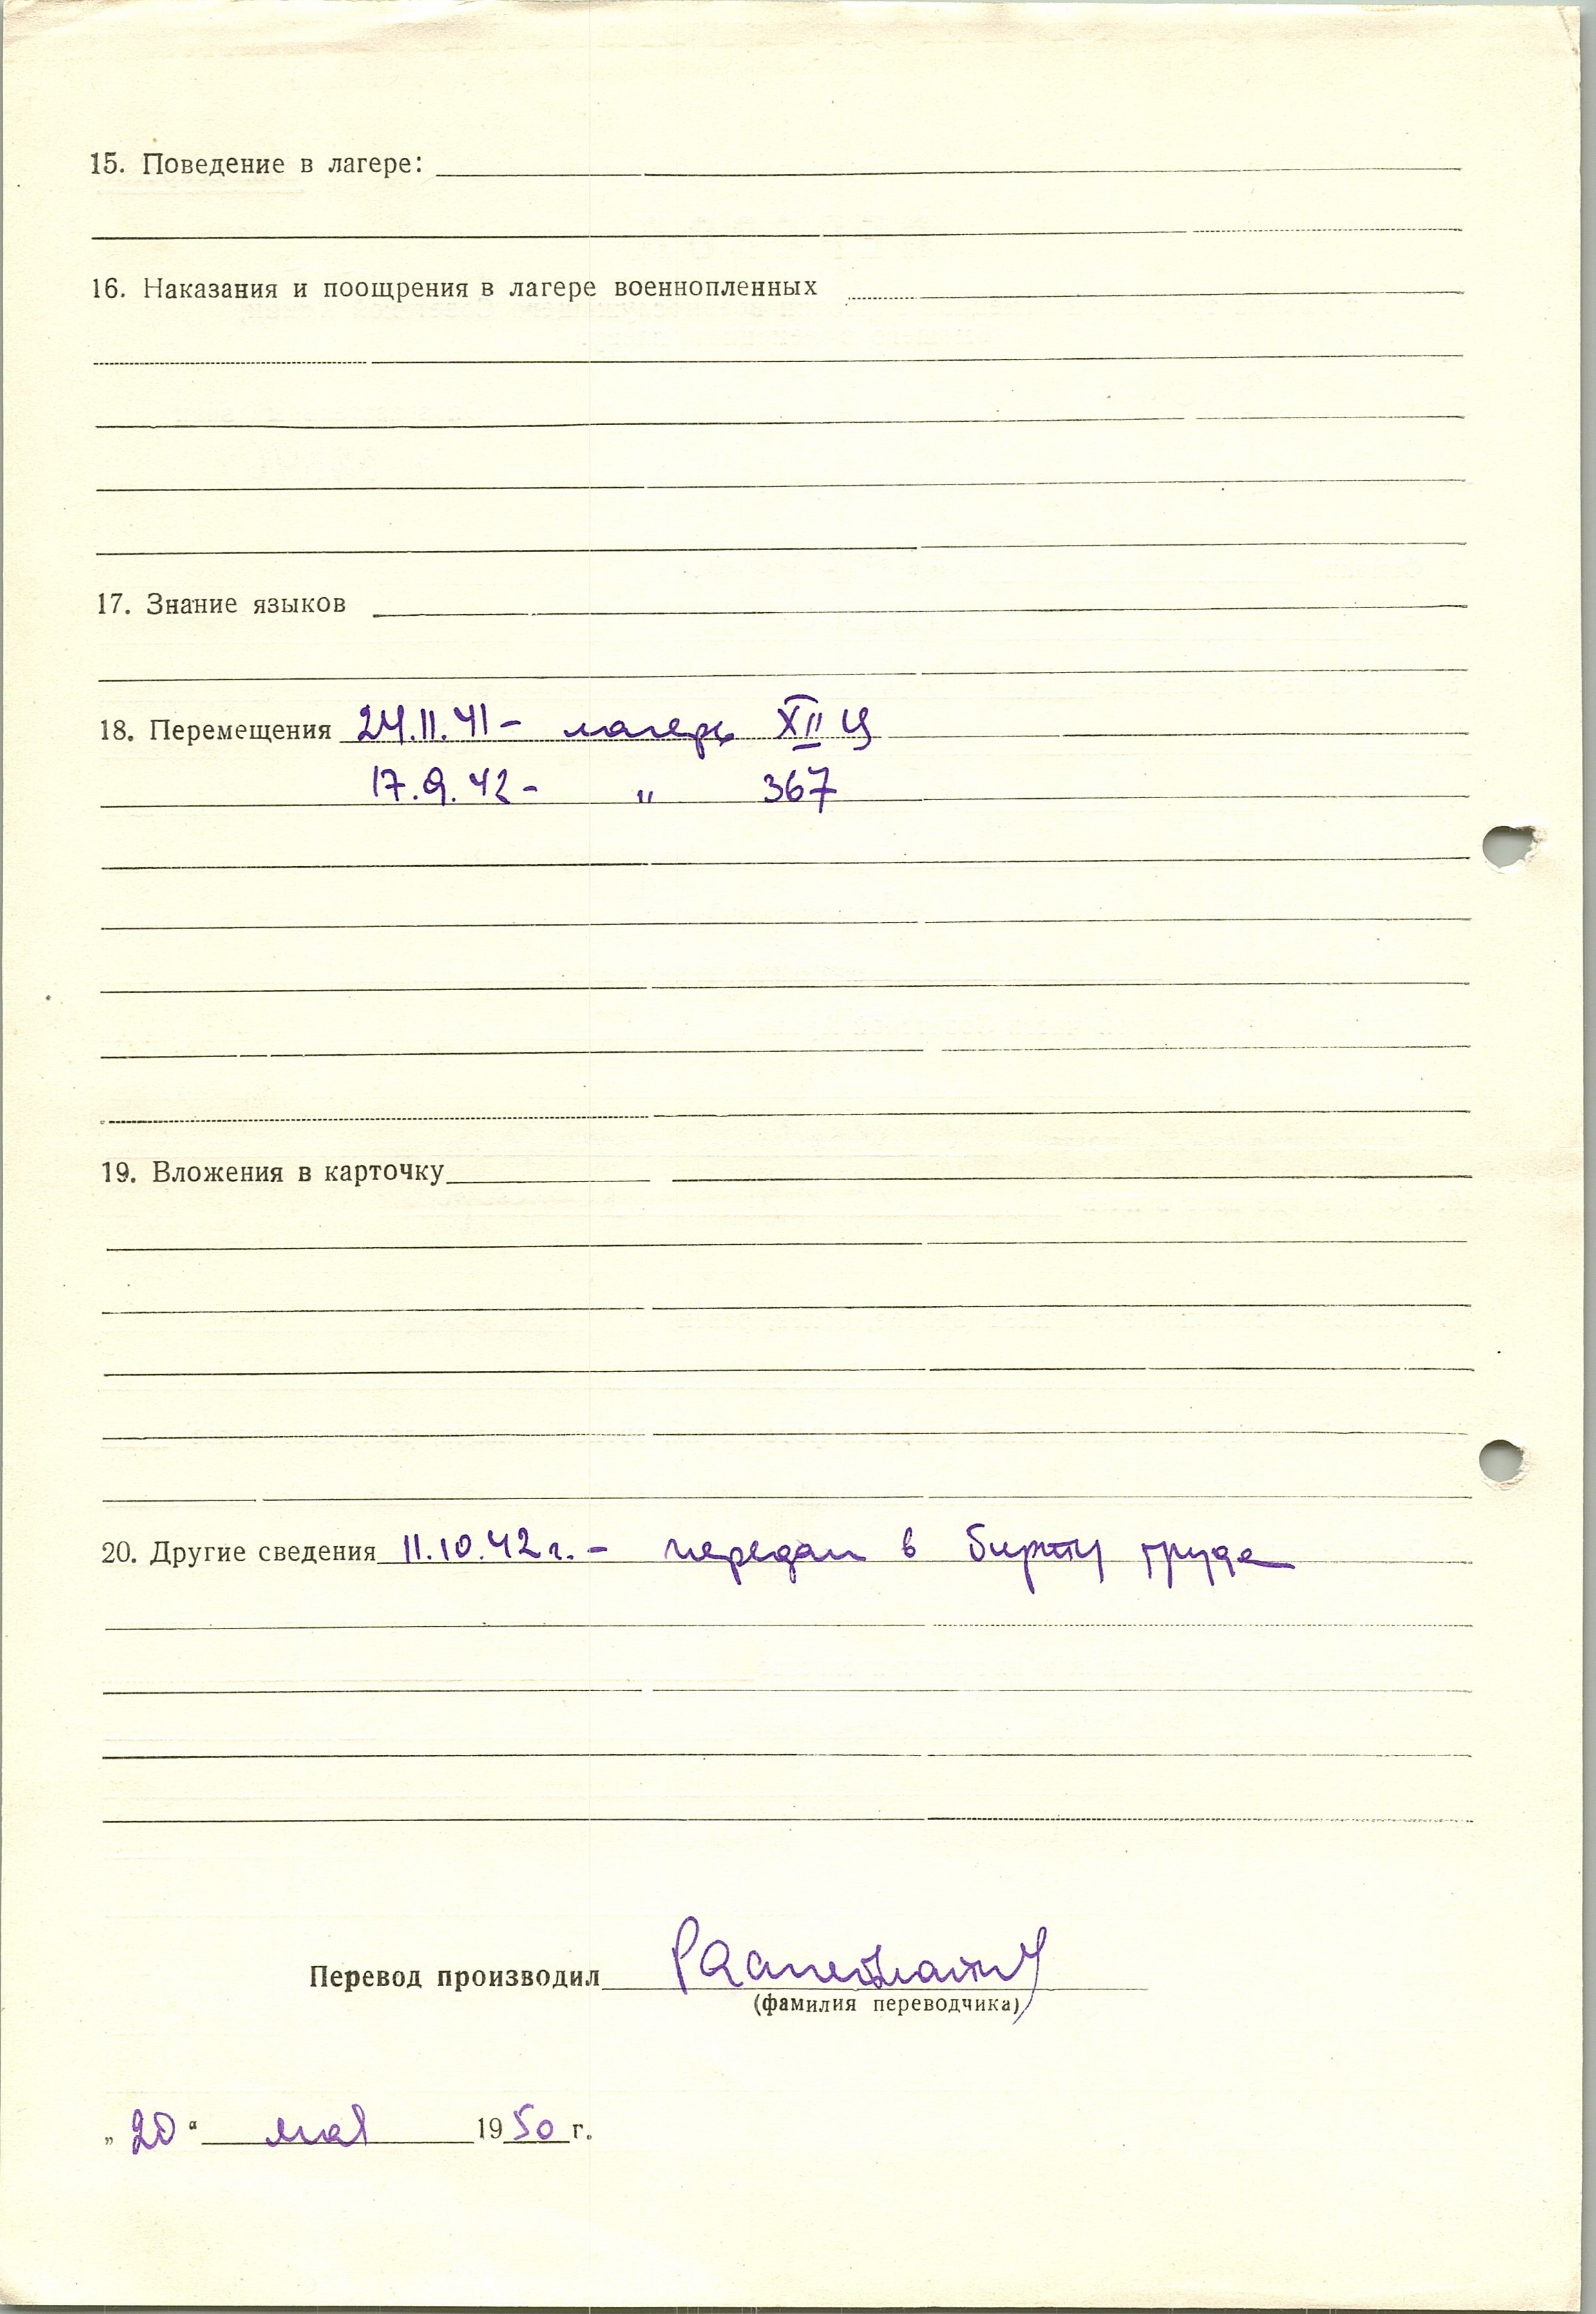 15. Поведение в лагере:
16. Наказания и поощрения в лагере военнопленных
17. Знание языков
18. Перемещения 24.11.41 - лагерь XII Ц
17.9.42 - " 367
19. Вложения в карточку
20. Другие сведения 11.10.42 г. - передан в биржу труда
Перевод производил
(фамилия переводчика)
„20“ мая 1950 г.